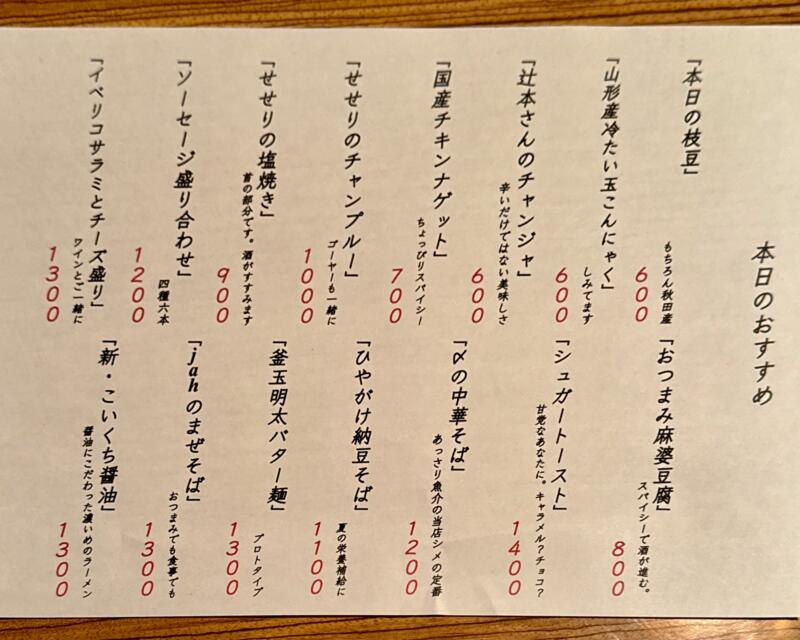 本日のおすすめ
「本日の枝豆」
もちろん秋田産
600
「山形産冷たい玉こんにゃく」
しみてます
600
「辻本さんのチャンジャ」
辛いだけではない美味しさ
600
「国産チキンナゲット」
ちょっぴりスパイシー
700
「せせりのチャンプルー」
ゴーヤーも一緒に
1000
「せせりの塩焼き」
首の部分です。酒がすすみます
900
「ソーセージ盛り合わせ」
四種六本
1200
「イベリコサラミとチーズ盛り」
ワインとご一緒に
1300
「おつまみ麻婆豆腐」
スパイシーで酒が進む。
800
「シュガートースト」
甘党なあなたに。キャラメル?チョコ?
1400
「〆の中華そば」
あっさり魚介の当店シメの定番
1200
「ひやがけ納豆そば」
夏の栄養補給に
1100
「釜玉明太バター麺」
プロトタイプ
1300
「jahのまぜそば」
おつまみでも食事でも
1300
「新・こいくち醤油」
醤油にこだわった濃いめのラーメン
1300